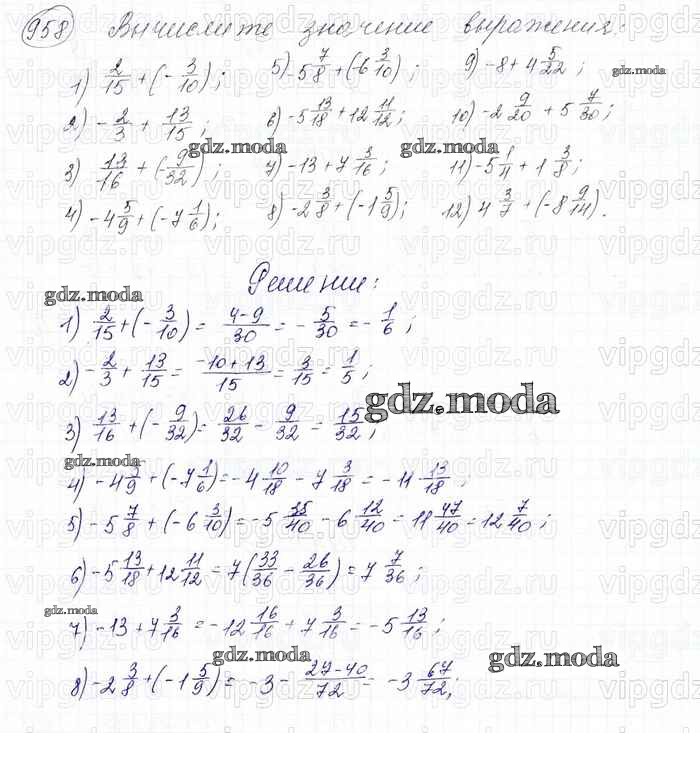 958 Вычислите значение выражения:
1) 2/15 + (-3/10); 5) -5 7/8 + (-6 3/10); 9) -8 + 4 5/22;
2) -2/3 + 13/15; 6) -5 13/18 + 12 11/12; 10) -2 9/20 + 5 7/30;
3) 13/16 + (-9/32); 7) -13 + 7 3/16; 11) -5 1/4 + 1 3/8;
4) -4 5/9 + (-7 1/6); 8) -2 3/8 + (-1 5/9); 12) 4 3/7 + (-8 9/14).
gdz.moda
gdz.moda
gdz.moda
Решение:
gdz.moda
1) 2/15 + (-3/10) = 4-9/30 = -5/30 = -1/6;
2) -2/3 + 13/15 = -10+13/15 = 3/15 = 1/5;
gdz.moda
3) 13/16 + (-9/32) = 26/32 - 9/32 = 15/32;
gdz.moda
4) -4 5/9 + (-7 1/6) = -4 10/18 - 7 3/18 = -11 13/18;
5) -5 7/8 + (-6 3/10) = -5 35/40 - 6 12/40 = 11 47/40 = 12 7/40;
6) -5 13/18 + 12 11/12 = 7(33/36 - 26/36) = 7 7/36;
gdz.moda
7) -13 + 7 3/16 = -12 16/16 + 7 3/16 = -5 13/16;
gdz.moda
gdz.moda
8) -2 3/8 + (-1 5/9) = -3 - 27-40/72 = -3 67/72;
vipgdz.ru